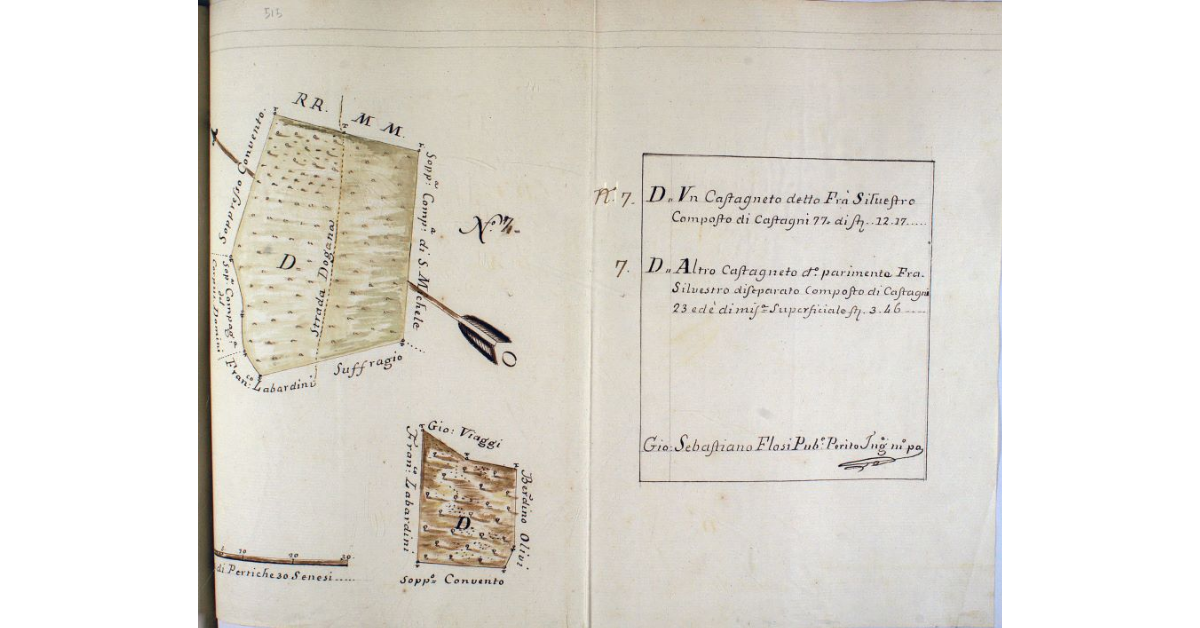 515
RR.
M M.
Soppresso Convento.
Sopp.ª Comp.ª di S. Michele
N.º 7.
D
Strada Dogana
Sop.ª Compag.ª
del
Corpus Domini
Fran.co Labardini
Suffragio
O
Gio: Viaggi
Fran.co Labardini
Ber.dino Olivi
D.
Sopp.º Convento
10 20 30
di Perriche 30 Senesi.....
N.º 7. D„ Vn Castagneto detto Frà Siluestro
Composto di Castagni 77. di st.. 12.17.....
7. D„ Altro Castagneto d.º parimente Fra.
Silvestro diseparato Composto di Castagni
23 ed è di mis.ª Superficiale st. 3.46 ....
Gio: Sebastiano Flosi Pub.º Perito Ing.re m.º pa